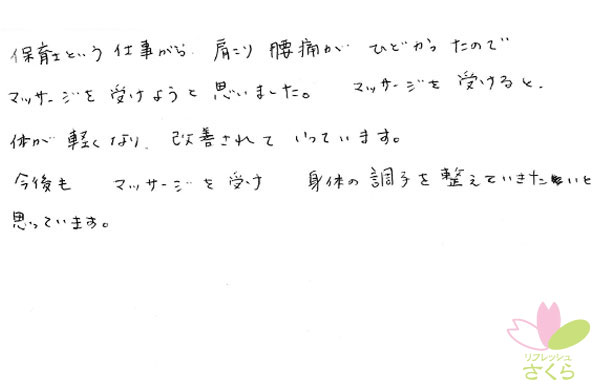 保育士という仕事がら、肩こり 腰痛が ひどかったので
マッサージを受けようと思いました。 マッサージを受けると、
体が軽くなり、改善されていっています。
今後も マッサージを受け 身体の調子を整えていきたいと
思っています。
リフレッシュ
さくら